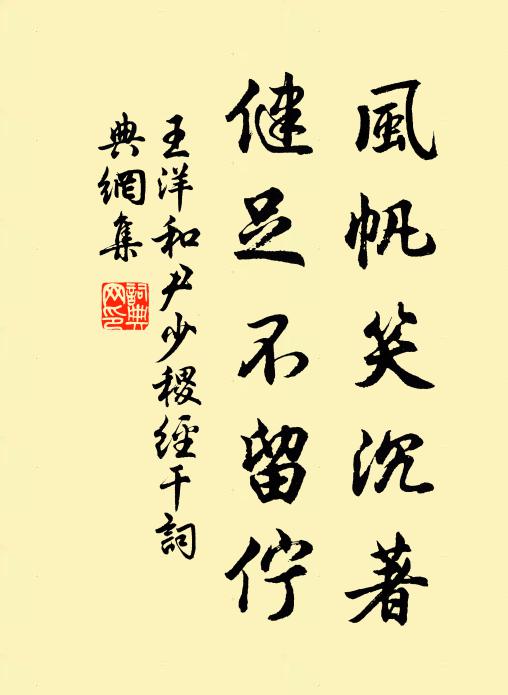 風帆笑沉著
健足不留佇
王洋和尹少稷經干詞
典網集
詞典网印